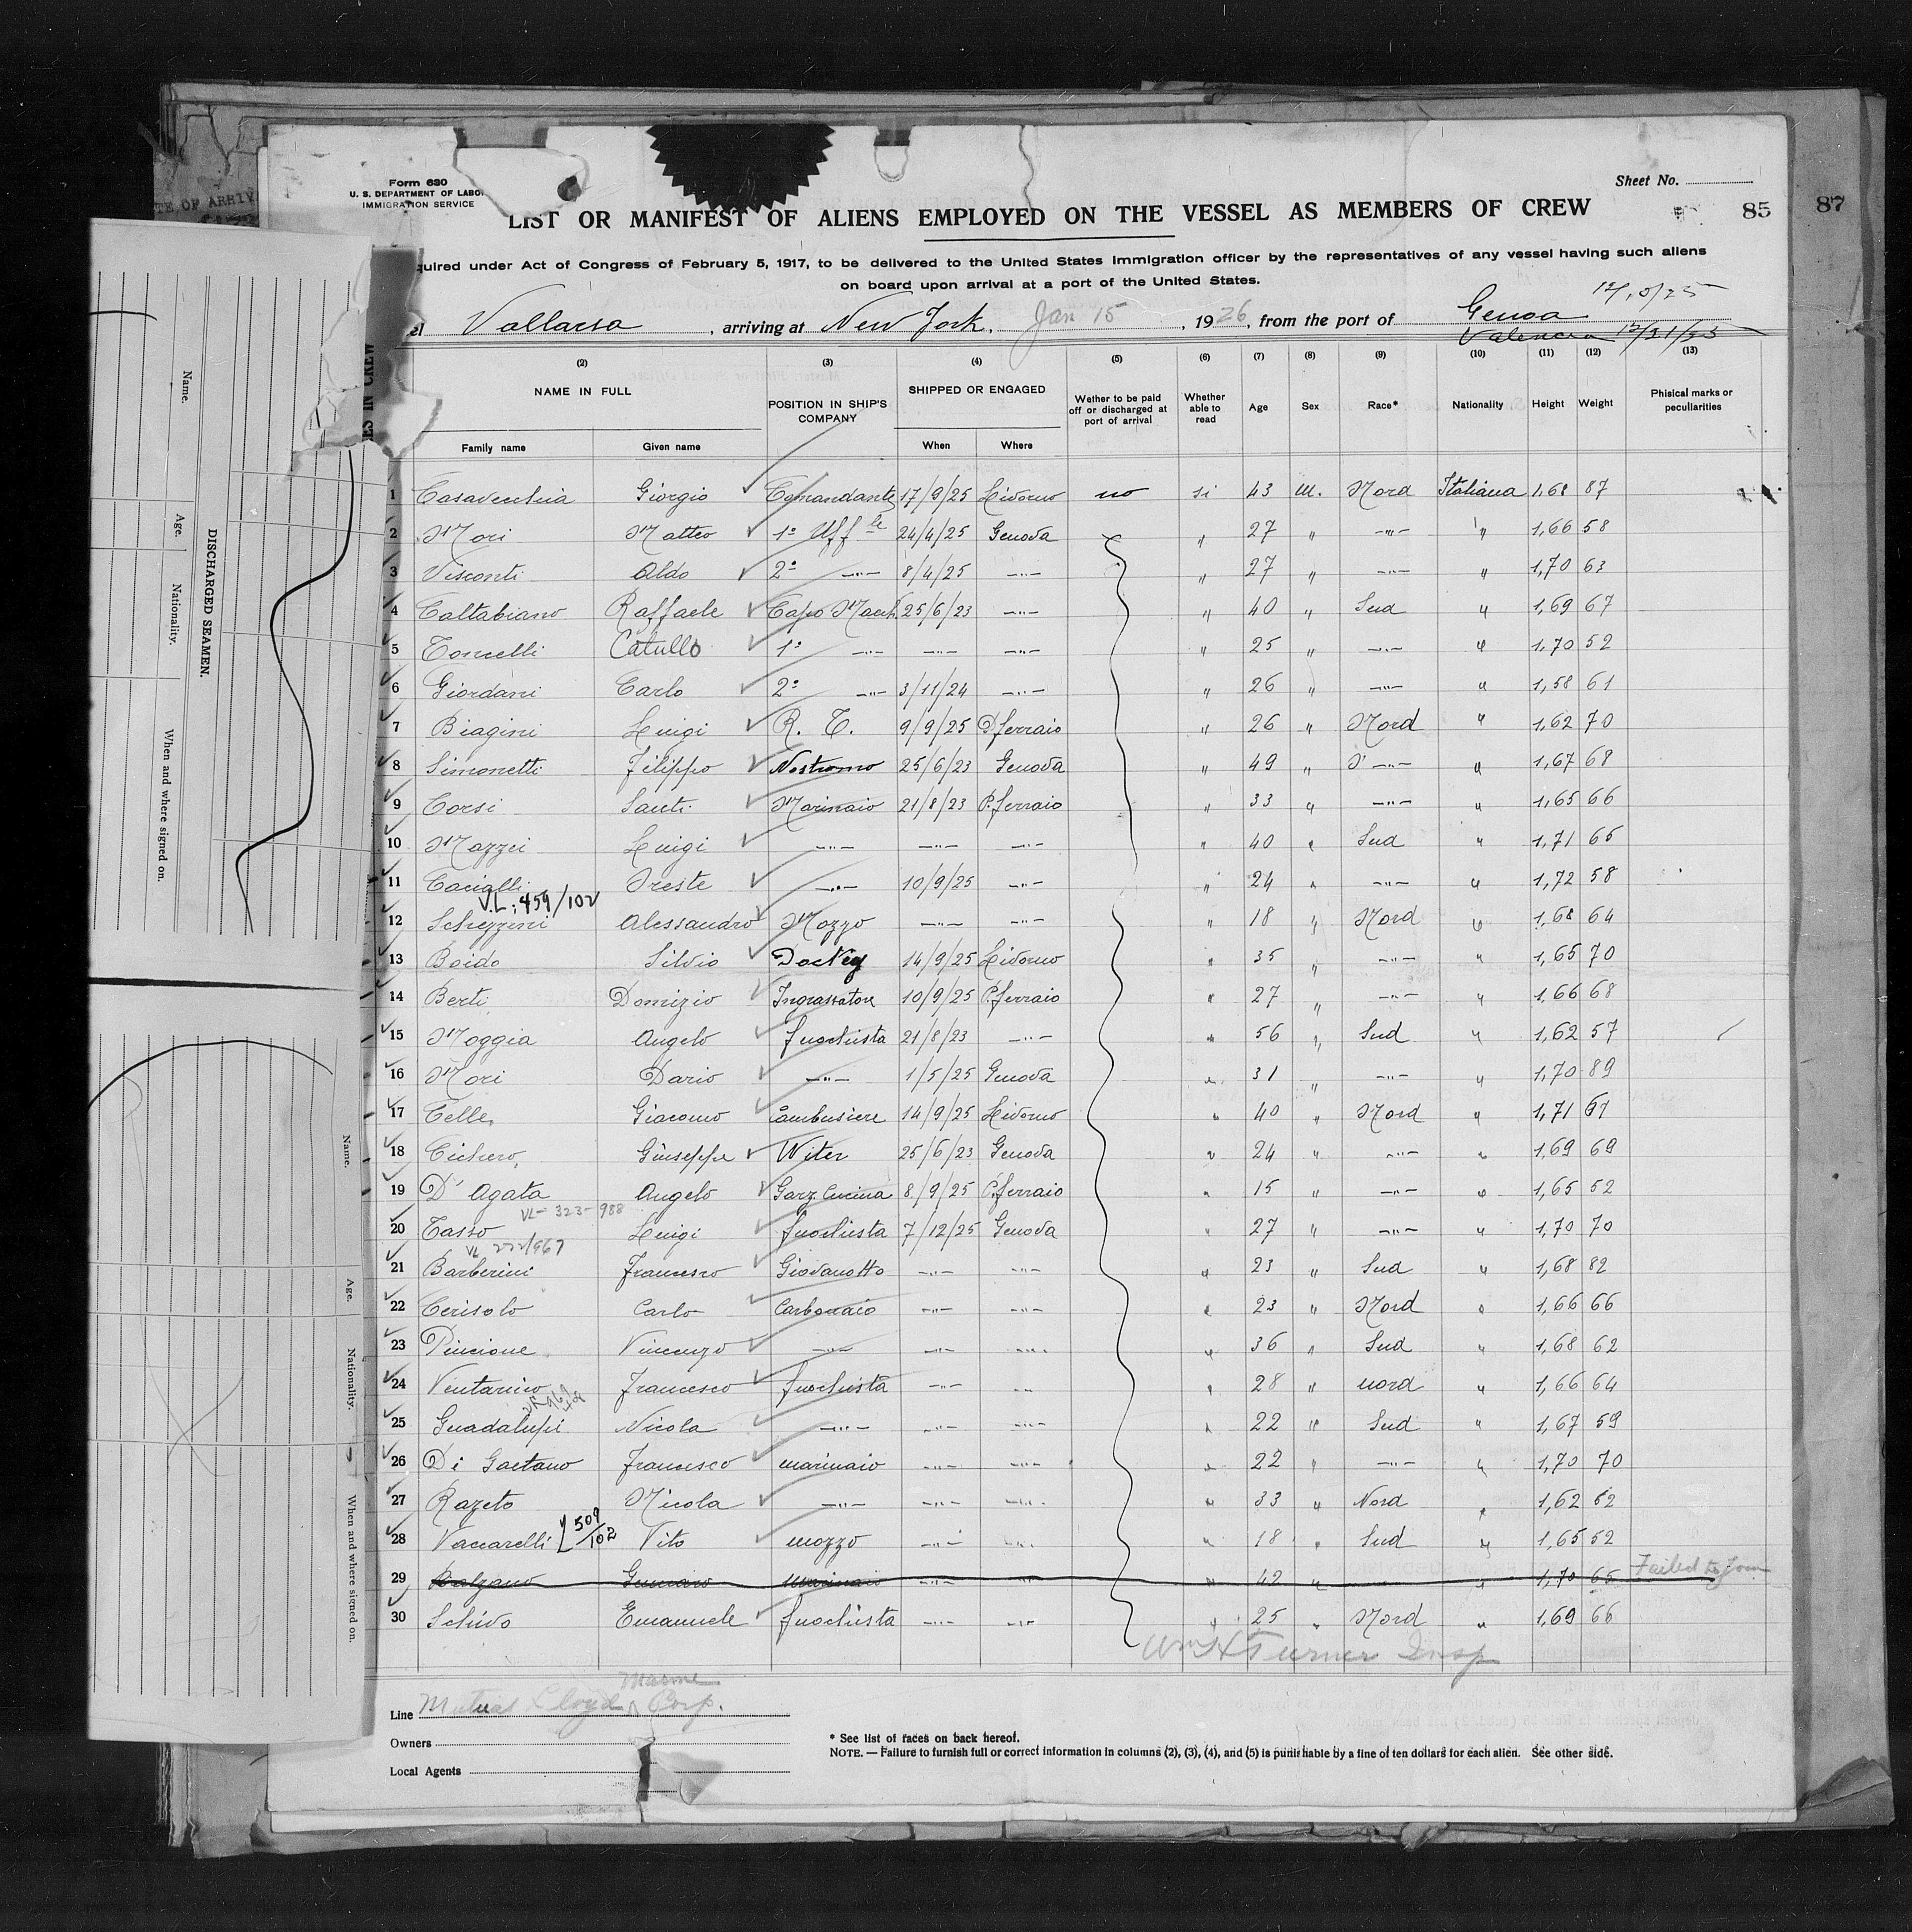 Form 630
U. S. DEPARTMENT OF LABO
IMMIGRATION SERVICE
TE OF ARRIV
Sheet No.
LIST OR MANIFEST OF ALIENS EMPLOYED ON THE VESSEL AS MEMBERS OF CREW
85
87
quired under Act of Congress of February 5, 1917, to be delivered to the United States immigration officer by the representatives of any vessel having such aliens
on board upon arrival at a port of the United States.
el Vallarsa, arriving at New York, Jan 15, 1926, from the port of Genoa
Valencia 12/31/25
(2) (3) (4) (5) (6) (7) (8) (9) (10) (11) (12) (13)
NAME IN FULL POSITION IN SHIP'S COMPANY SHIPPED OR ENGAGED Wether to be paid off or discharged at port of arrival Whether able to read Age Sex Race* Nationality Height Weight Phisical marks or peculiarities
Family name Given name When Where
1 Casavecchia Giorgio Comandante 17/9/25 Livorno no si 43 m. Nord Italiana 1,68 87
2 Mori Matteo 1° Uff le 24/4/25 Genova " 27 " —"— " 1,66 58
3 Visconti Aldo 2° —"— 8/4/25 —"— " 27 " —"— " 1,70 63
4 Caltabiano Raffaele Capo Macch 25/6/23 —"— " 40 " Sud " 1,69 67
5 Toncelli Catullo 1° —"— —"— —"— " 25 " —"— " 1,70 52
6 Giordani Carlo 2° —"— 3/11/24 —"— " 26 " —"— " 1,58 61
7 Biagini Luigi R. T. 9/9/25 P.ferraio " 26 " Nord " 1,62 70
8 Simonetti Filippo Nostromo 25/6/23 Genova " 49 " —"— " 1,67 68
9 Corsi Santi Marinaio 21/8/23 P.ferraio " 33 " —"— " 1,65 66
10 Mazzei Luigi —"— —"— —"— " 40 " Sud " 1,71 65
11 Cacialli Oreste —"— 10/9/25 —"— " 24 " —"— " 1,72 58
V.L: 459/102
12 Schezzini Alessandro Mozzo —"— —"— " 18 " Nord " 1,68 64
13 Boido Silvio 14/9/25 Livorno " 35 " —"— " 1,65 70
14 Berti Domizio Ingrassatore 10/9/25 P.ferraio " 27 " —"— " 1,66 68
15 Moggia Angelo fuochista 21/8/23 —"— " 56 " Sud " 1,62 57
16 Mori Dario —"— 1/5/25 Genova " 31 " —"— " 1,70 89
17 Telle Giacomo Cambusiere 14/9/25 Livorno " 40 " Nord " 1,71 67
18 Cichero, Giuseppe Witer 25/6/23 Genova " 24 " —"— " 1,69 69
19 D'Agata Angelo Garz. Cucina 8/9/25 P.ferraio " 15 " —"— " 1,65 52
VL- 323-988
20 Tasso Luigi fuochista 7/12/25 Genova " 27 " —"— " 1,70 70
VL 222/967
21 Barberini Francesco Giovanotto —"— —"— " 23 " Sud " 1,68 82
22 Cerisolo Carlo Carbonaio —"— —"— " 23 " Nord " 1,66 66
23 Pincione Vincenzo —"— —"— —"— " 36 " Sud " 1,68 62
24 Ventanico Francesco fuochista —"— —"— " 28 " nord " 1,66 64
25 Guadalupi Nicola —"— —"— —"— " 22 " Sud " 1,67 59
26 Di Gaetano Francesco marinaio —"— —"— " 22 " —"— " 1,70 70
27 Razeto Nicola —"— —"— —"— " 33 " Nord " 1,62 62
28 Vaccarelli VL 509/102 Vito mozzo —"— —"— " 18 " Sud " 1,65 52
29 Balzano Gennaro marinaio —"— —"— " 42 " " 1,70 65 Failed to Join
30 Schivo Emanuele fuochista —"— —"— " 25 " Nord " 1,69 66
Wm H Turner Insp
Line Mutual Lloyd Marine Corp.
Owners
Local Agents
* See list of races on back hereof.
NOTE. — Failure to furnish full or correct information in columns (2), (3), (4), and (5) is punishable by a fine of ten dollars for each alien. See other side.
ES IN CREW
DISCHARGED SEAMEN.
Name.
Age.
Nationality.
When and where signed on.
Name.
Age.
Nationality.
When and where signed on.